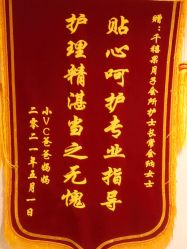 赠：千禧果月子会所护士长常会纳女士
贴心呵护专业指导
护理精湛当之无愧
小VC爸爸妈妈
二零二一年五月一日